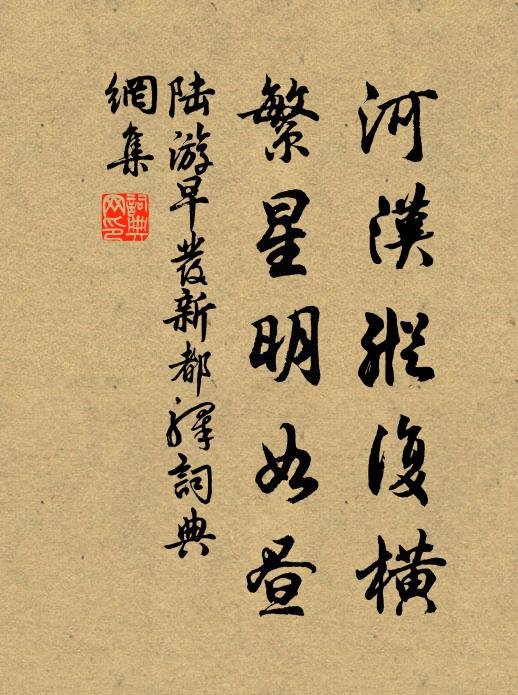 河漢縱復橫
繁星明如晝
陸游早發新都驛詞典
網集
詞典
网印